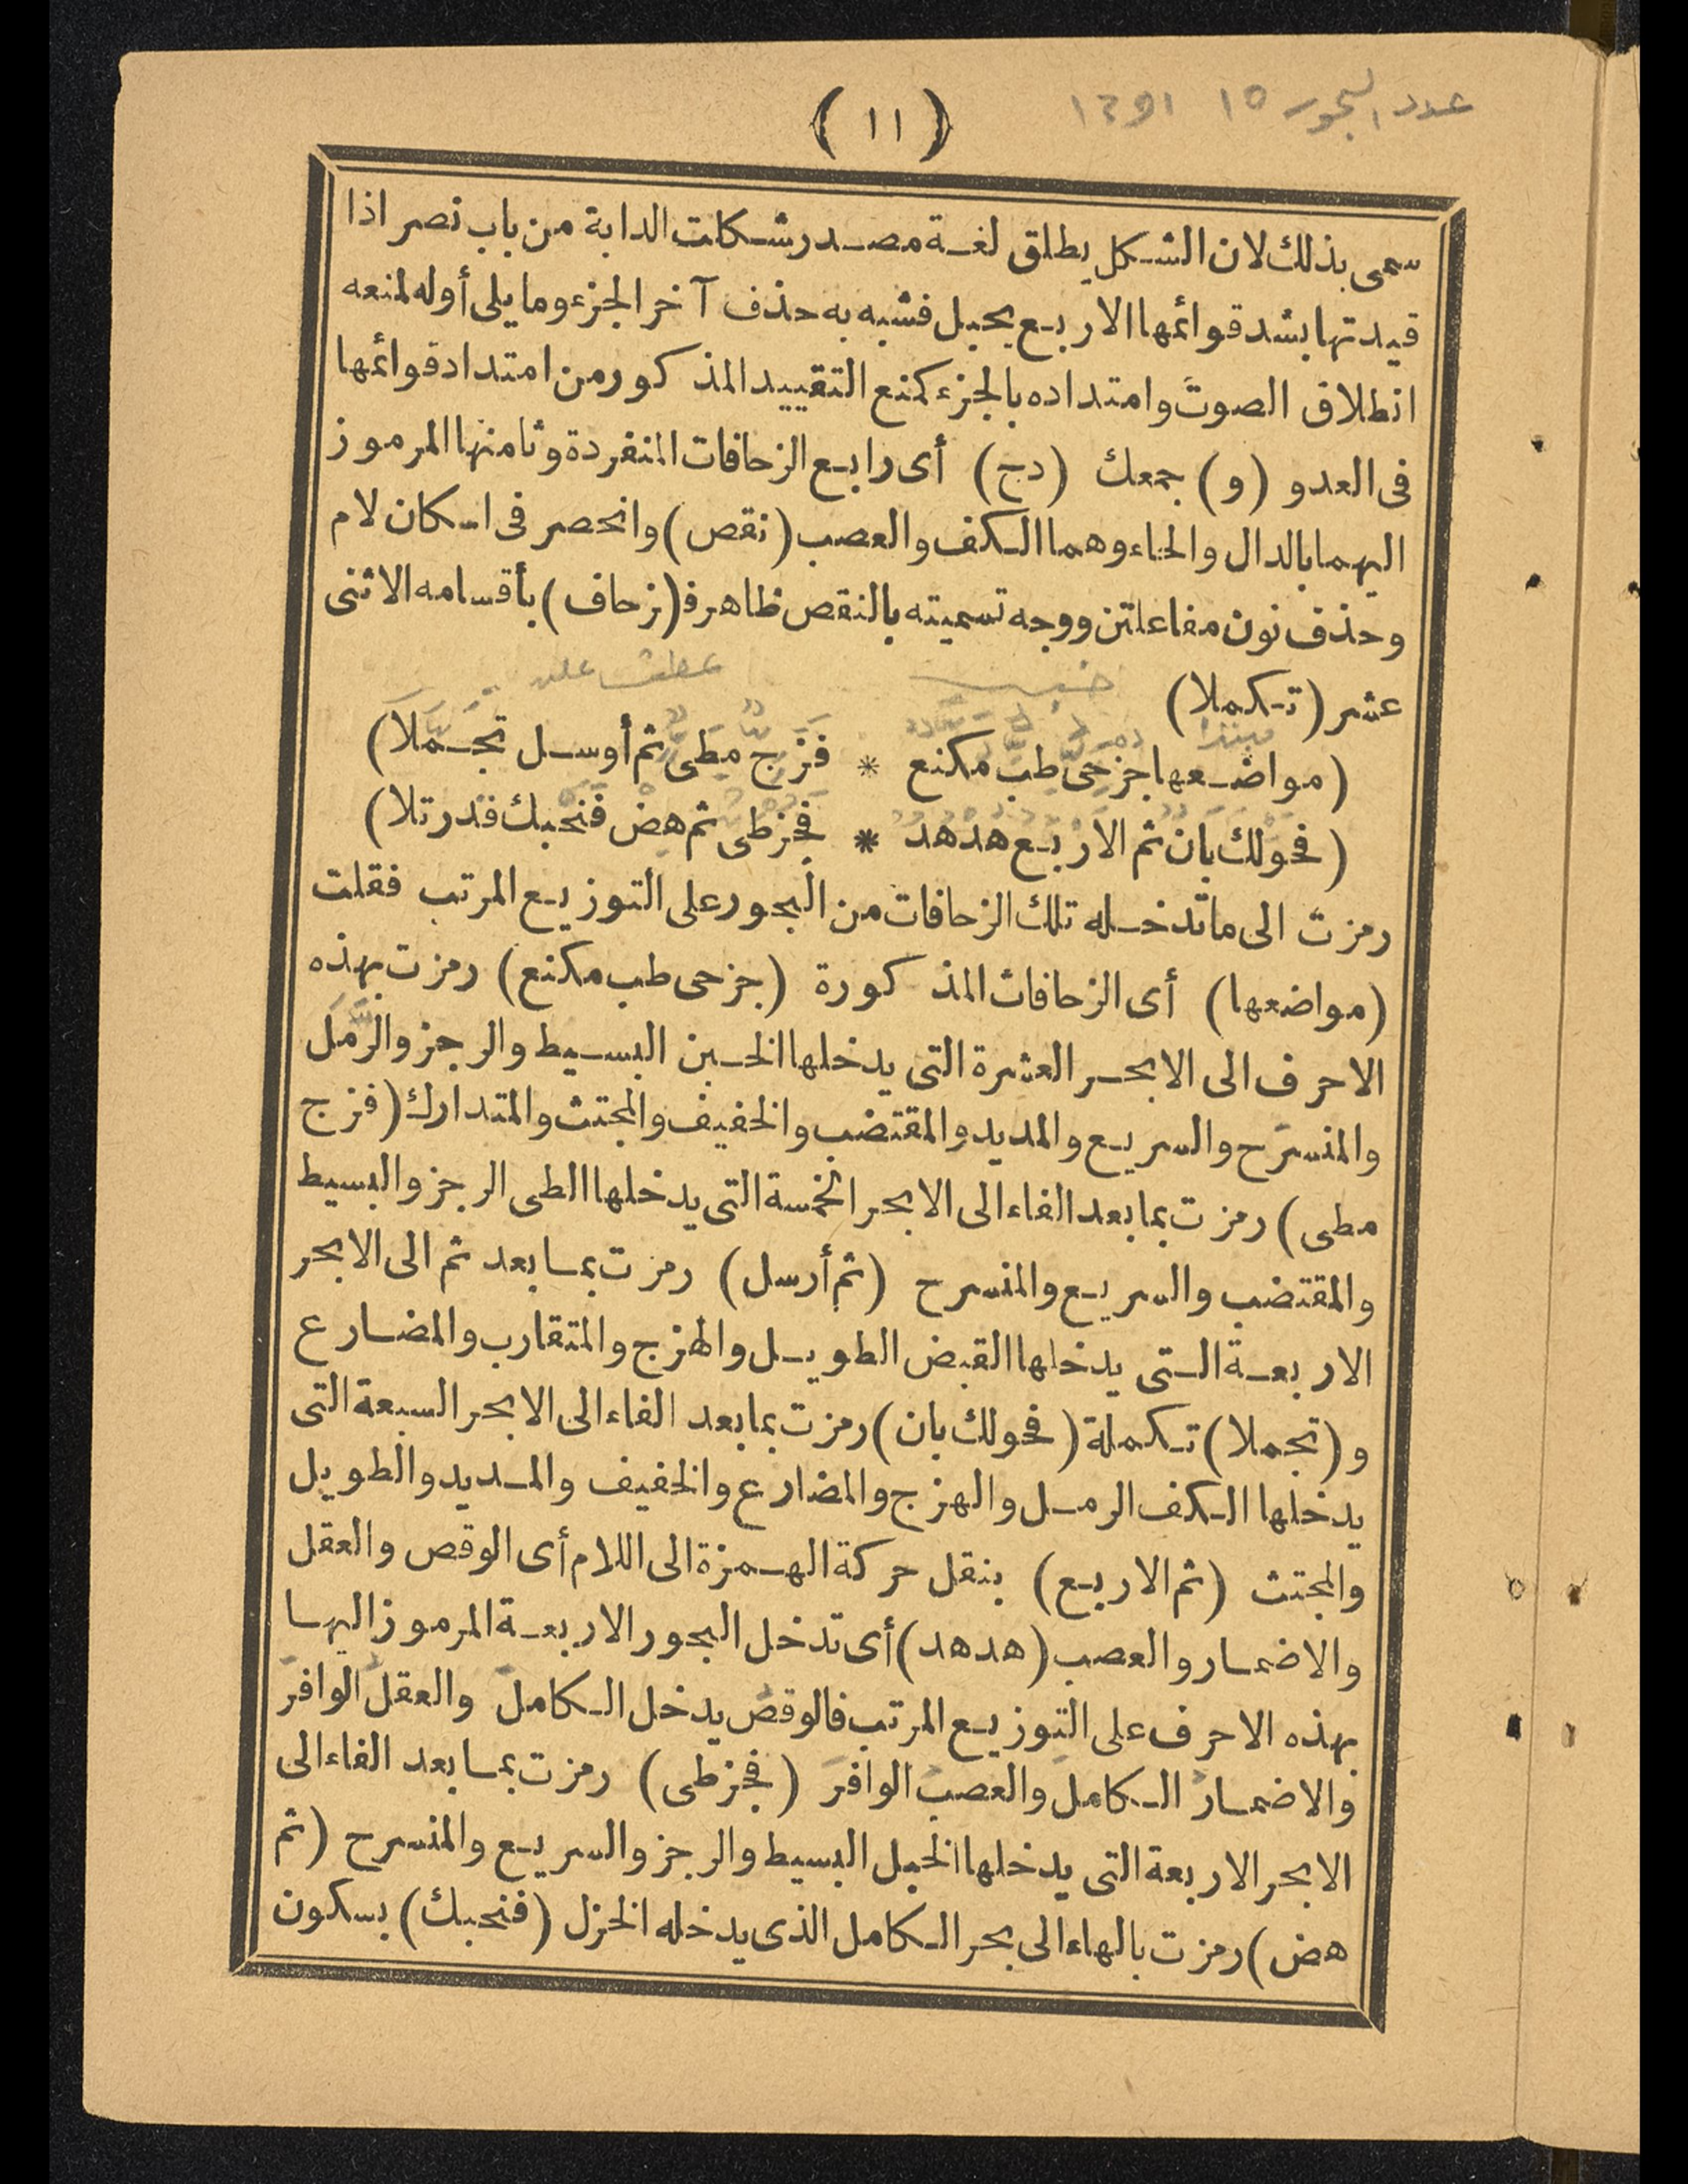 عدد البحور ١٥
(١١)
سمى بذلك لان الشكل يطلق لغة مصدر شكلت الدابة من باب نصر اذا
قيدتها بشد قوائمها الاربع بحبل فشبه به حذف آخر الجزء وما يلى أوله لمنعه
انطلاق الصوت وامتداده بالجزء كمنع التقييد المذكور من امتداد قوائمها
فى العدو (و) جمعك (دح) أى رابع الزحافات المنفردة وثامنها المرموز
اليهما بالدال والحاء وهما الكف والعصب (نقص) وانحصر فى اسكان لام
وحذف نون مفاعلتن ووجه تسميته بالنقص ظاهر فـ(زحاف) بأقسامه الاثنى
عشر (تكملا)
خبر عطف عليه
مبتدا
(مواضعها جزحى طب مكنع * فزج مطى ثم أوسل تجملا)
(فحولك بان ثم الاربع هدهد * فجزطى ثم هض فنحبك قدرتلا)
رمزت الى ما تدخله تلك الزحافات من البحور على التوزيع المرتب فقلت
(مواضعها) أى الزحافات المذكورة (جزحى طب مكنع) رمزت بهذه
الاحرف الى الابحر العشرة التى يدخلها الخبن البسيط والرجز والرمل
والمنسرح والسريع والمديد والمقتضب والخفيف والمجتث والمتدارك (فزج
مطى) رمزت بما بعد الفاء الى الابحر الخمسة التى يدخلها الطى الرجز والبسيط
والمقتضب والسريع والمنسرح (ثم أرسل) رمزت بما بعد ثم الى الابحر
الاربعة التى يدخلها القبض الطويل والهزج والمتقارب والمضارع
و (تجملا) تكملة (فحولك بان) رمزت بما بعد الفاء الى الابحر السبعة التى
يدخلها الكف الرمل والهزج والمضارع والخفيف والمديد والطويل
والمجتث (ثم الاربع) بنقل حركة الهمزة الى اللام أى الوقص والعقل
والاضمار والعصب (هدهد) أى تدخل البحور الاربعة المرموز اليها
بهذه الاحرف على التوزيع المرتب فالوقص يدخل الكامل والعقل الوافر
والاضمار الكامل والعصب الوافر (فجزطى) رمزت بما بعد الفاء الى
الابحر الاربعة التى يدخلها الخبل البسيط والرجز والسريع والمنسرح (ثم
هض) رمزت بالهاء الى بحر الكامل الذى يدخله الخزل (فنحبك) بسكون